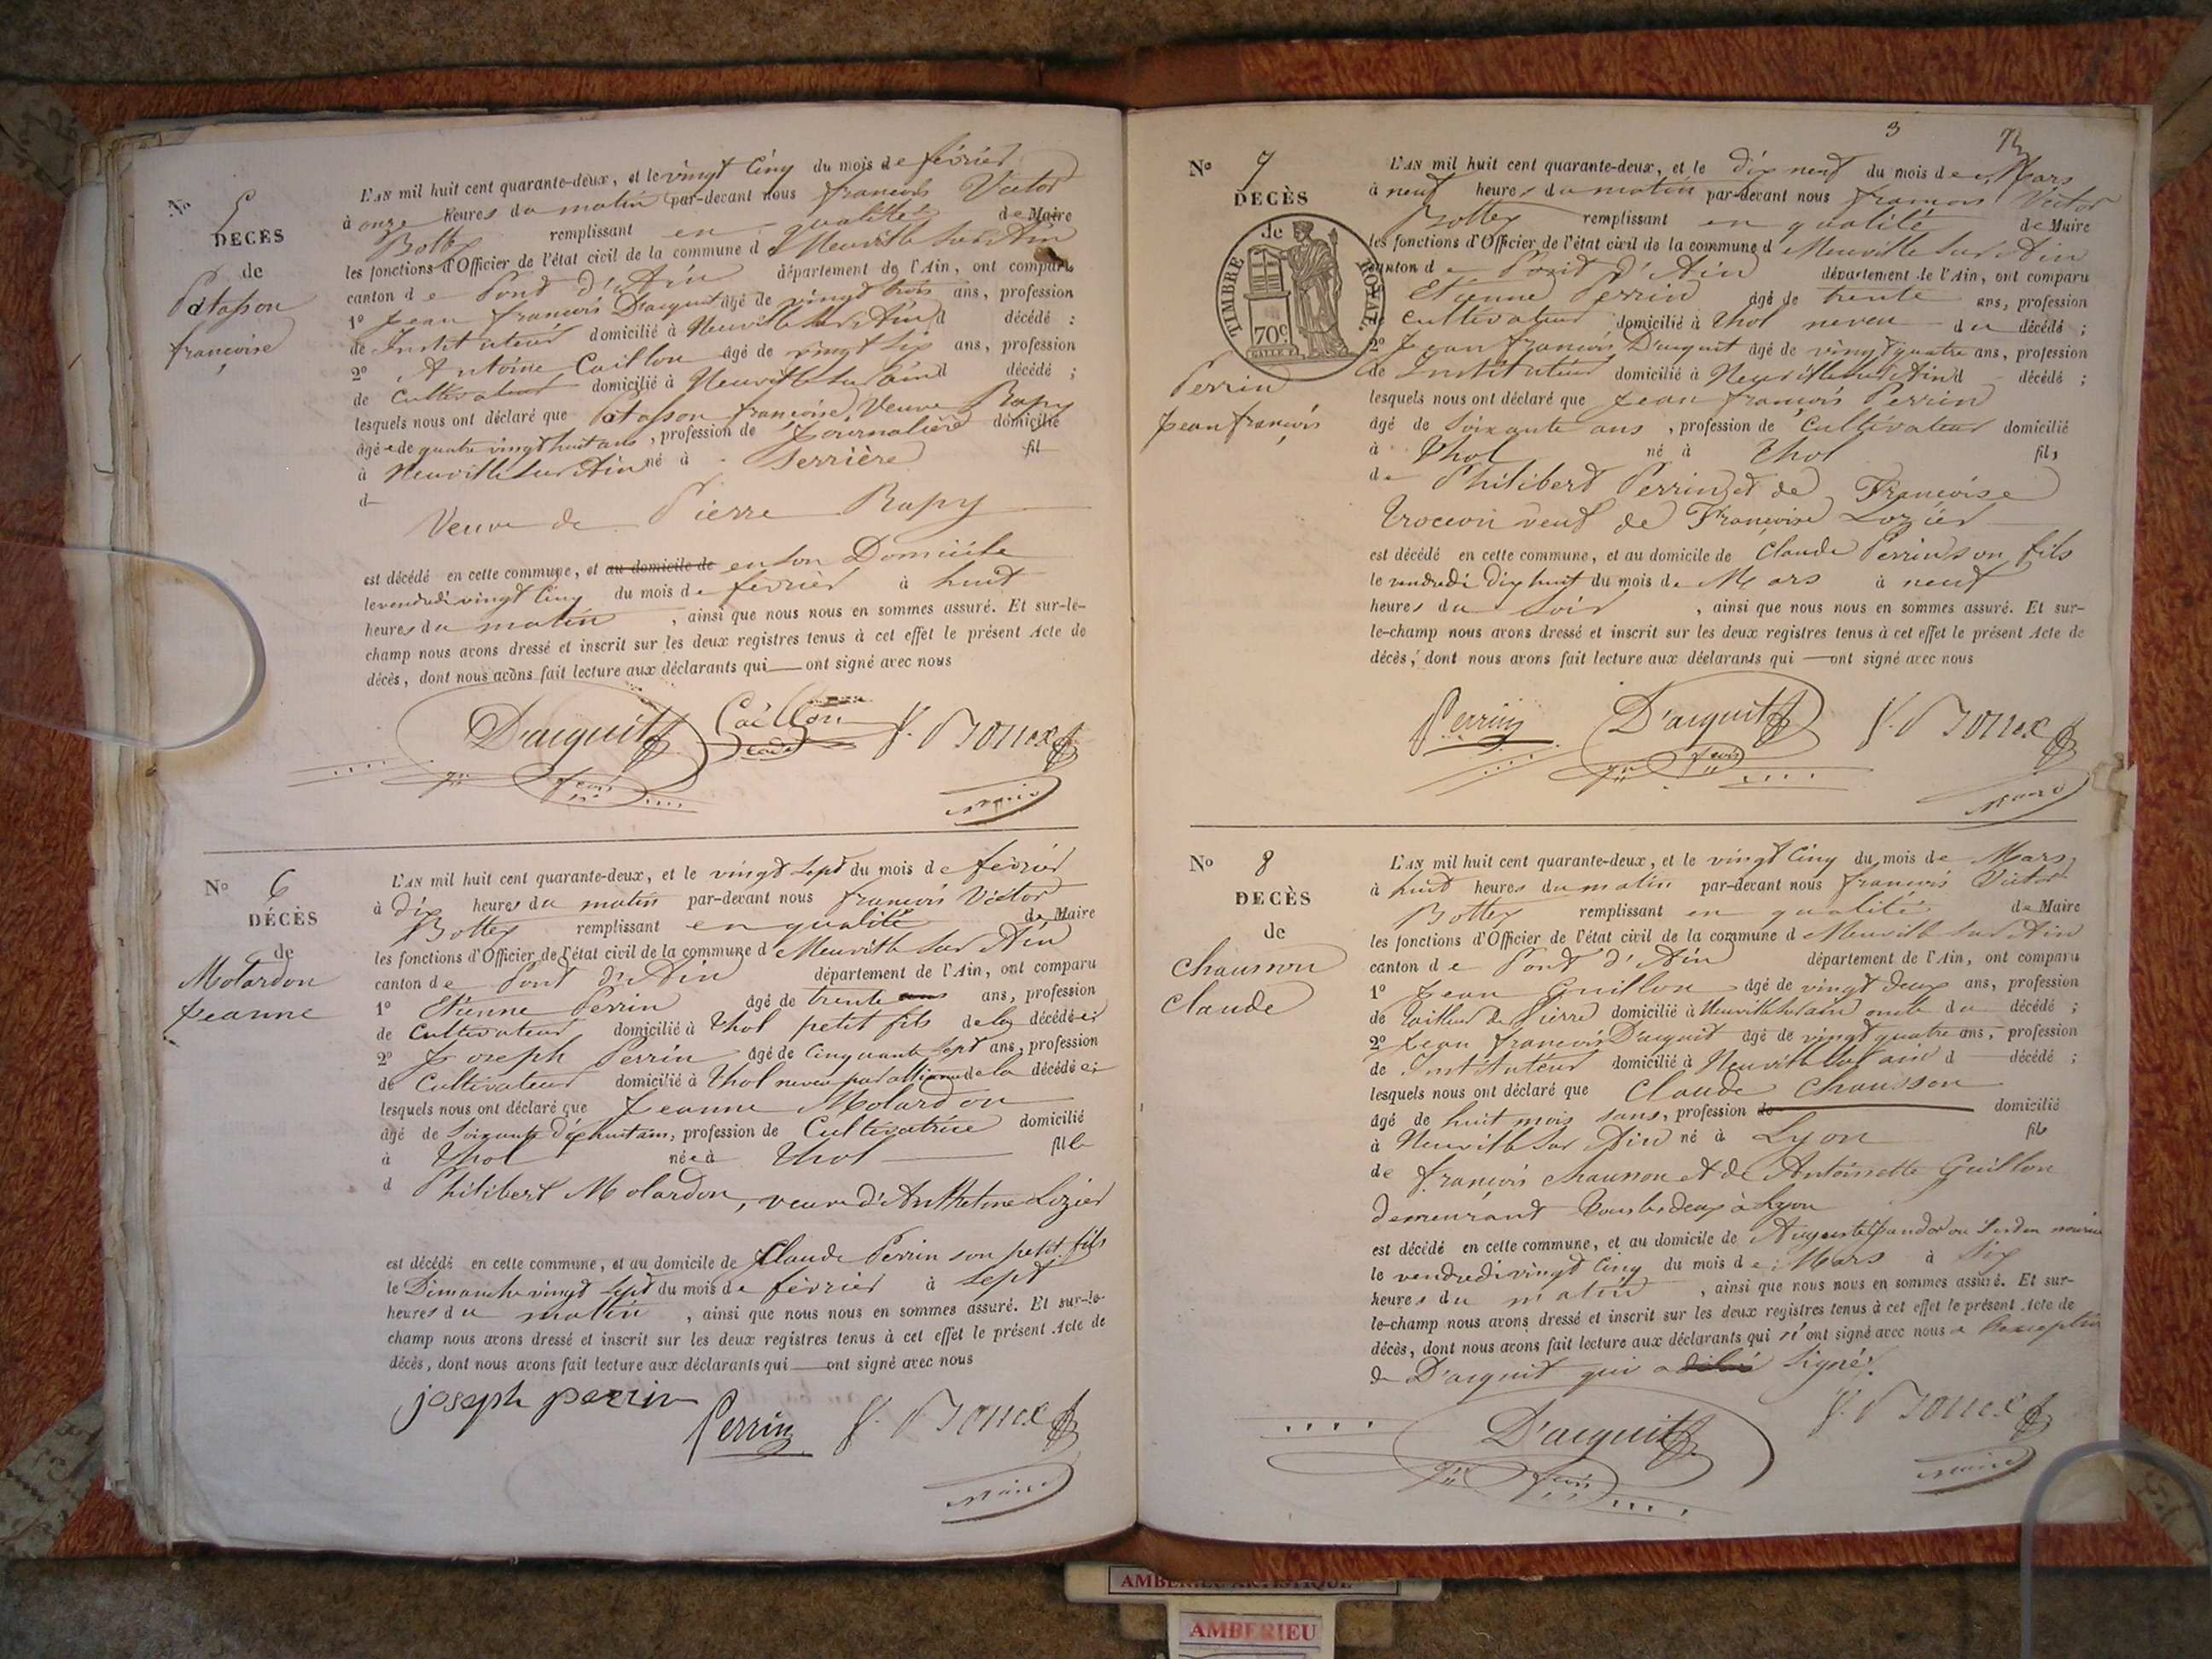 No 5
DÉCÈS
de
Patasson
françoise
L'AN mil huit cent quarante-deux, et le vingt cinq du mois de février
à onze heures du matin par-devant nous françois Victor
Bottex remplissant en qualité de Maire
les fonctions d'Officier de l'état civil de la commune de Neuville sur Ain
canton de Pont d'Ain département de l'Ain, ont comparu
1° Jean françois D'arquit âgé de vingt trois ans, profession
de Instituteur domicilié à Neuville sur Ain d décédé ;
2° Antoine Caillon âgé de vingt six ans, profession
de Cultivateur domicilié à Neuville sur ain d décédé ;
lesquels nous ont déclaré que Patasson françoise, Veuve Rapy
âgée de quatre vingt huit ans, profession de Journalière domicilié
à Neuville sur Ain né à Serrière fil
d
Veuve de Pierre Rapy
est décédé en cette commune, et au domicile de en son Domicile
le vendredi vingt cinq du mois de février à huit
heures du matin, ainsi que nous nous en sommes assuré. Et sur-le-
champ nous avons dressé et inscrit sur les deux registres tenus à cet effet le présent Acte de
décès, dont nous avons fait lecture aux déclarants qui ont signé avec nous
D'arquit Caillon V. Bottex
maire
No 6
DÉCÈS
de
Molardon
Jeanne
L'AN mil huit cent quarante-deux, et le vingt sept du mois de février
à dix heures du matin par-devant nous françois Victor
Bottex remplissant en qualité de Maire
les fonctions d'Officier de l'état civil de la commune de Neuville sur Ain
canton de Pont d'Ain département de l'Ain, ont comparu
1° Etienne Perrin âgé de trente ans ans, profession
de Cultivateur domicilié à Thol petit fils de la décédée ;
2° Joseph Perrin âgé de Cinquante sept ans, profession
de Cultivateur domicilié à Thol neveu par alliance de la décédée ;
lesquels nous ont déclaré que Jeanne Molardon
âgé de soixante dix huit ans, profession de Cultivatrice domicilié
à Thol née à Thol fille
d Philibert Molardon, veuve d'Anthelme Lozier
est décédé en cette commune, et au domicile de Claude Perrin son petit fils
le Dimanche vingt sept du mois de février à sept
heures du matin, ainsi que nous nous en sommes assuré. Et sur-le-
champ nous avons dressé et inscrit sur les deux registres tenus à cet effet le présent Acte de
décès, dont nous avons fait lecture aux déclarants qui ont signé avec nous
joseph perrin
Perrin V. Bottex
maire
3
No 7
DÉCÈS
de
TIMBRE ROYAL.
70c
Perrin
Jean françois
L'AN mil huit cent quarante-deux, et le dix neuf du mois de Mars
à neuf heures du matin par-devant nous françois Victor
Bottex remplissant en qualité de Maire
les fonctions d'Officier de l'état civil de la commune de Neuville sur Ain
canton de Pont d'Ain département de l'Ain, ont comparu
1° Etienne Perrin âgé de trente ans, profession
de Cultivateur domicilié à Thol neveu du décédé ;
2° Jean françois D'arquit âgé de vingt quatre ans, profession
de Instituteur domicilié à Neuville sur Ain d décédé ;
lesquels nous ont déclaré que Jean françois Perrin
âgé de Soixante ans, profession de Cultivateur domicilié
à Thol né à Thol fils
de Philibert Perrin et de Françoise
veuf de Françoise Lozier
est décédé en cette commune, et au domicile de Claude Perrin son fils
le vendredi dix huit du mois de Mars à neuf
heures du soir, ainsi que nous nous en sommes assuré. Et sur-
le-champ nous avons dressé et inscrit sur les deux registres tenus à cet effet le présent Acte de
décès, dont nous avons fait lecture aux déclarants qui ont signé avec nous
Perrin D'arquit V. Bottex
maire
No 8
DÉCÈS
de
Chausson
Claude
L'AN mil huit cent quarante-deux, et le vingt cinq du mois de Mars
à huit heures du matin par-devant nous françois Victor
Bottex remplissant en qualité de Maire
les fonctions d'Officier de l'état civil de la commune de Neuville sur Ain
canton de Pont d'Ain département de l'Ain, ont comparu
1° Jean Guillon âgé de vingt deux ans, profession
de tailleur de Pierre domicilié à Neuville sur ain oncle du décédé ;
2° Jean françois D'arquit âgé de vingt quatre ans, profession
de Instituteur domicilié à Neuville sur ain d décédé ;
lesquels nous ont déclaré que Claude Chausson
âgé de huit mois sans, profession de domicilié
à Neuville sur Ain né à Lyon fils
de françois Chausson et de Antoinette Guillon
demeurant tous les deux à Lyon
est décédé en cette commune, et au domicile de Auguste
le vendredi vingt cinq du mois de Mars à six
heures du matin, ainsi que nous nous en sommes assuré. Et sur-
le-champ nous avons dressé et inscrit sur les deux registres tenus à cet effet le présent Acte de
décès, dont nous avons fait lecture aux déclarants qui n'ont signé avec nous a l'exception
de D'arquit qui a signé.
D'arquit V. Bottex
maire
AMBERIEU ARTISTIQUE
AMBERIEU